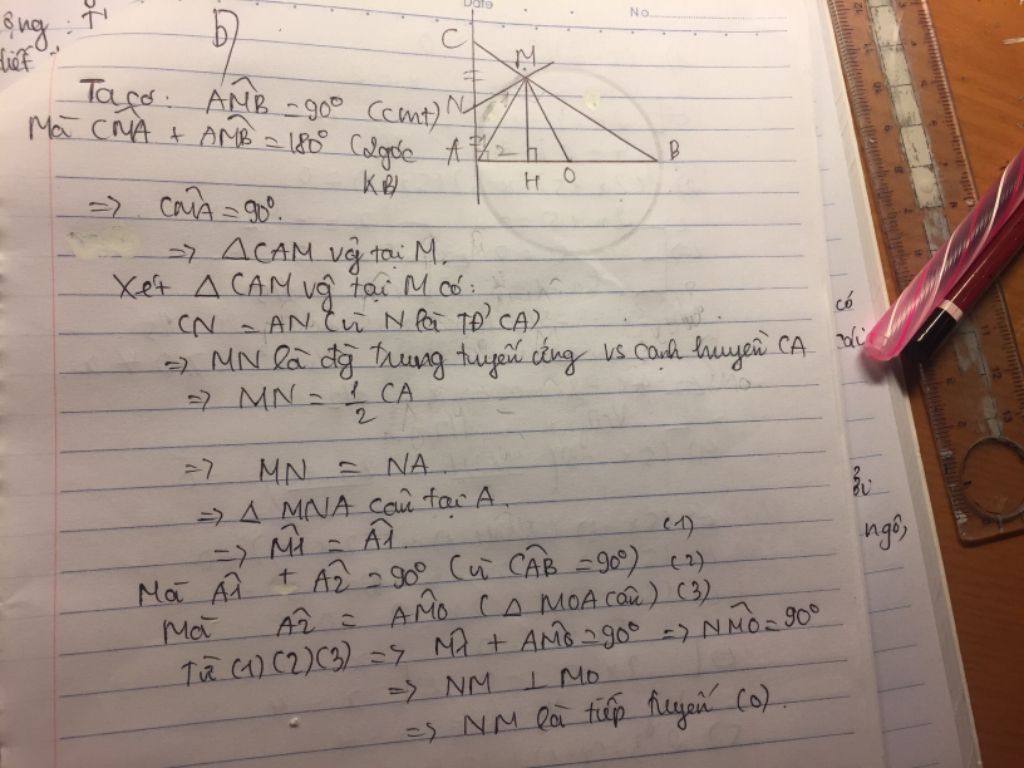 Date
No
b)
C
M
N
A
1
2
H
O
B
Ta có: AM̂B = 90° (cmt)
Mà CM̂A + AM̂B = 180° (2 góc
KB)
=> CM̂A = 90°.
=> △CAM vg tại M.
Xét △CAM vg tại M có:
CN = AN (vì N là TĐ CA)
=> MN là đg trung tuyến ứng vs cạnh huyền CA
=> MN = 1/2 CA
=> MN = NA
=> △ MNA cân tại A.
=> M̂1 = Â1. (1)
Mà Â1 + Â2 = 90° (vì CÂB = 90°) (2)
Mà Â2 = AM̂O (△ MOA cân) (3)
Từ (1) (2) (3) => M̂1 + AM̂O = 90° => NM̂O = 90°
=> NM ⊥ MO
=> NM là tiếp tuyến (O).
có
ngô,